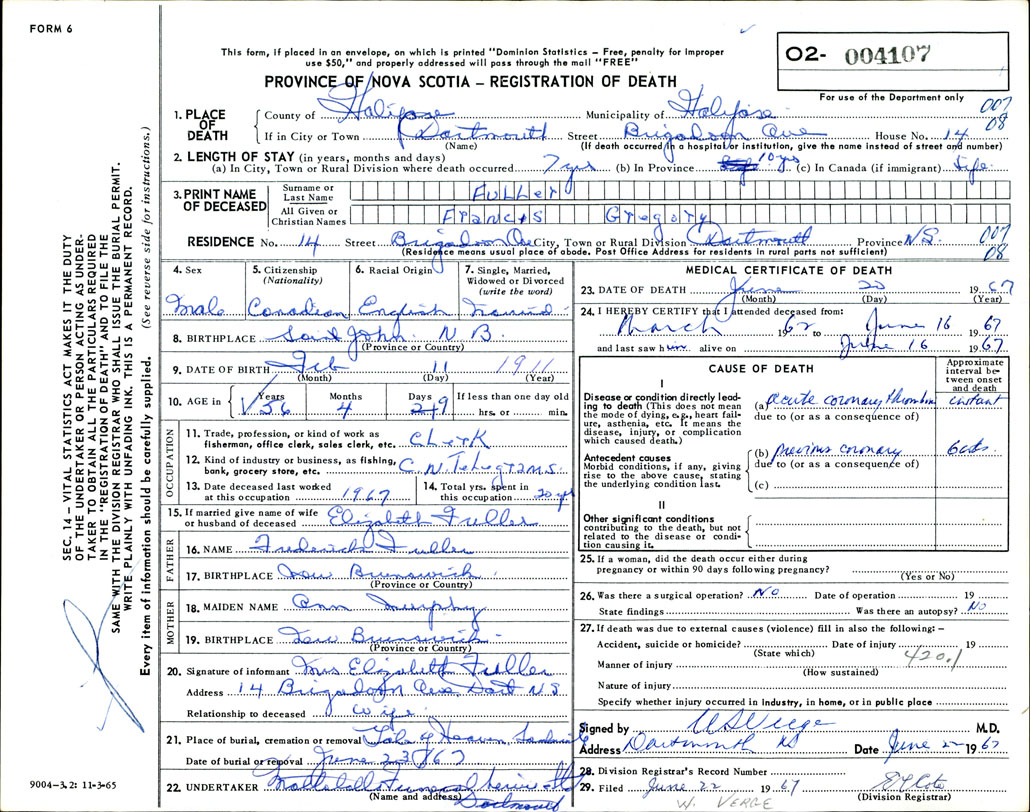 FORM 6
This form, if placed in an envelope, on which is printed "Dominion Statistics – Free, penalty for improper
use $50," and properly addressed will pass through the mail "FREE"
PROVINCE OF NOVA SCOTIA – REGISTRATION OF DEATH
O2- 004107
For use of the Department only
007
08
1. PLACE OF DEATH County of Halifax Municipality of Halifax
If in City or Town Dartmouth Street Brigadoon Ave House No. 14
(Name) (If death occurred in a hospital or institution, give the name instead of street and number)
2. LENGTH OF STAY (in years, months and days)
(a) In City, Town or Rural Division where death occurred 7 yrs (b) In Province 10 yrs (c) In Canada (if immigrant) Life
3. PRINT NAME OF DECEASED Surname or Last Name Fuller
All Given or Christian Names Francis Gregory
RESIDENCE No. 14 Street Brigadoon Ave City, Town or Rural Division Dartmouth Province N.S.
007
08
(Residence means usual place of abode. Post Office Address for residents in rural parts not sufficient)
4. Sex Male
5. Citizenship (Nationality) Canadian
6. Racial Origin English
7. Single, Married, Widowed or Divorced (write the word) Married
8. BIRTHPLACE Saint John N B
(Province or Country)
9. DATE OF BIRTH Feb 11 1911
(Month) (Day) (Year)
10. AGE in Years 56 Months 4 Days 9 If less than one day old hrs. or min.
OCCUPATION
11. Trade, profession, or kind of work as fisherman, office clerk, sales clerk, etc. Clerk
12. Kind of industry or business, as fishing, bank, grocery store, etc. C. N. Telegrams.
13. Date deceased last worked at this occupation 1967
14. Total yrs. spent in this occupation 20 yrs
15. If married give name of wife or husband of deceased Elizabeth Fuller
FATHER
16. NAME Frederick Fuller
17. BIRTHPLACE New Brunswick
(Province or Country)
MOTHER
18. MAIDEN NAME Ann Murphy
19. BIRTHPLACE New Brunswick
(Province or Country)
20. Signature of informant Mrs Elizabeth Fuller
Address 14 Brigadoon Ave Dart N.S
Relationship to deceased wife
21. Place of burial, cremation or removal Gate of Heaven,
Date of burial or removal June 23/67
22. UNDERTAKER Funeral Service
(Name and address) Dartmouth
MEDICAL CERTIFICATE OF DEATH
23. DATE OF DEATH June 20 1967
(Month) (Day) (Year)
24. I HEREBY CERTIFY that I attended deceased from:
March 1962 to June 16 1967
and last saw him alive on June 16 1967.
CAUSE OF DEATH
Approximate interval between onset and death
I
Disease or condition directly leading to death (This does not mean the mode of dying, e.g., heart failure, asthenia, etc. It means the disease, injury, or complication which caused death.)
(a) acute coronary instant
due to (or as a consequence of)
Antecedent causes
Morbid conditions, if any, giving rise to the above cause, stating the underlying condition last.
(b) previous coronary
due to (or as a consequence of)
(c)
II
Other significant conditions
contributing to the death, but not related to the disease or condition causing it.
25. If a woman, did the death occur either during pregnancy or within 90 days following pregnancy?
(Yes or No)
26. Was there a surgical operation? No Date of operation 19
State findings Was there an autopsy? No
27. If death was due to external causes (violence) fill in also the following: –
Accident, suicide or homicide? Date of injury 19
(State which) 420.1
Manner of injury
(How sustained)
Nature of injury
Specify whether injury occurred in industry, in home, or in public place
Signed by M.D.
Address Dartmouth NS Date June 1967
28. Division Registrar's Record Number
29. Filed June 22 1967
(Division Registrar)
W. VERGE
SEC. 14 – VITAL STATISTICS ACT MAKES IT THE DUTY
OF THE UNDERTAKER OR PERSON ACTING AS UNDERTAKER
TO OBTAIN ALL THE PARTICULARS REQUIRED
IN THE "REGISTRATION OF DEATH" AND TO FILE THE
SAME WITH THE DIVISION REGISTRAR WHO SHALL ISSUE THE BURIAL PERMIT.
WRITE PLAINLY WITH UNFADING INK. THIS IS A PERMANENT RECORD.
Every item of information should be carefully supplied. (See reverse side for instructions.)
9004–3.2: 11-3-65